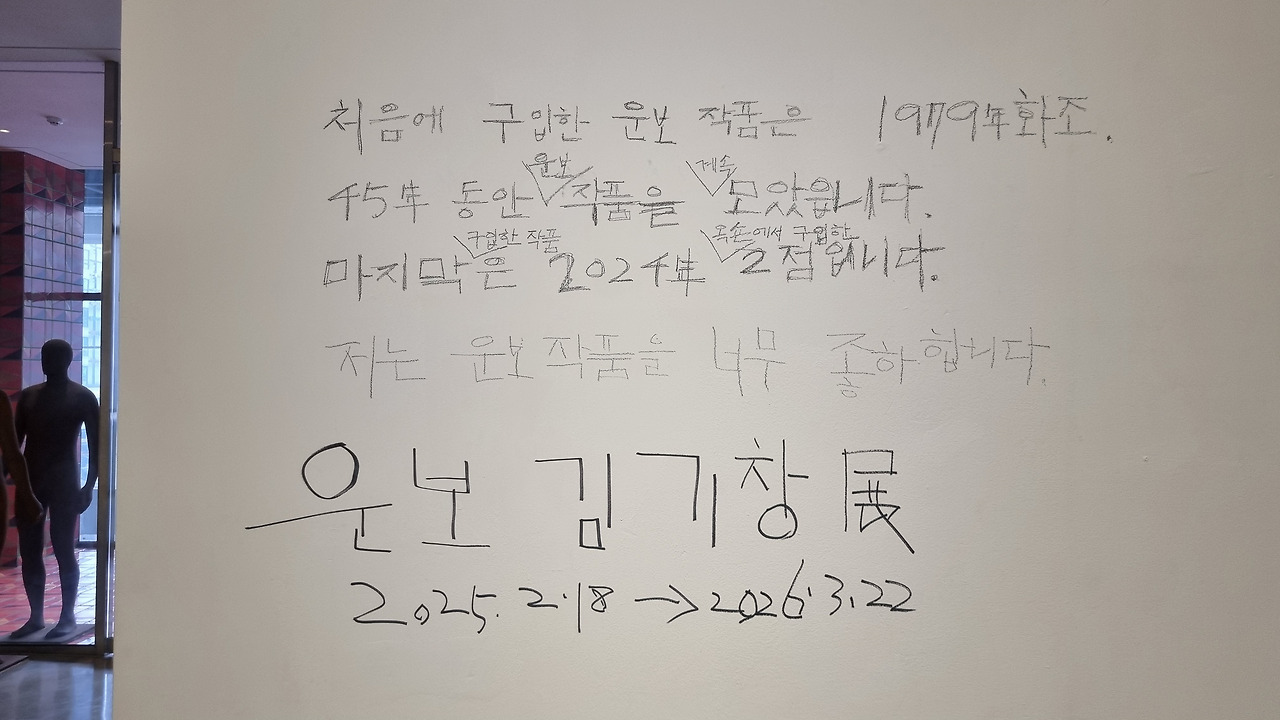 처음에 구입한 운보 작품은 1979年 화조.
45年 동안 운보 작품을 계속 모았읍니다.
마지막 구입한 작품은 2024年 옥션에서 구입한 2점입니다.
저는 운보 작품을 너무 좋하합니다.
운보 김기창 展
2025. 2.18 → 2026.3.22